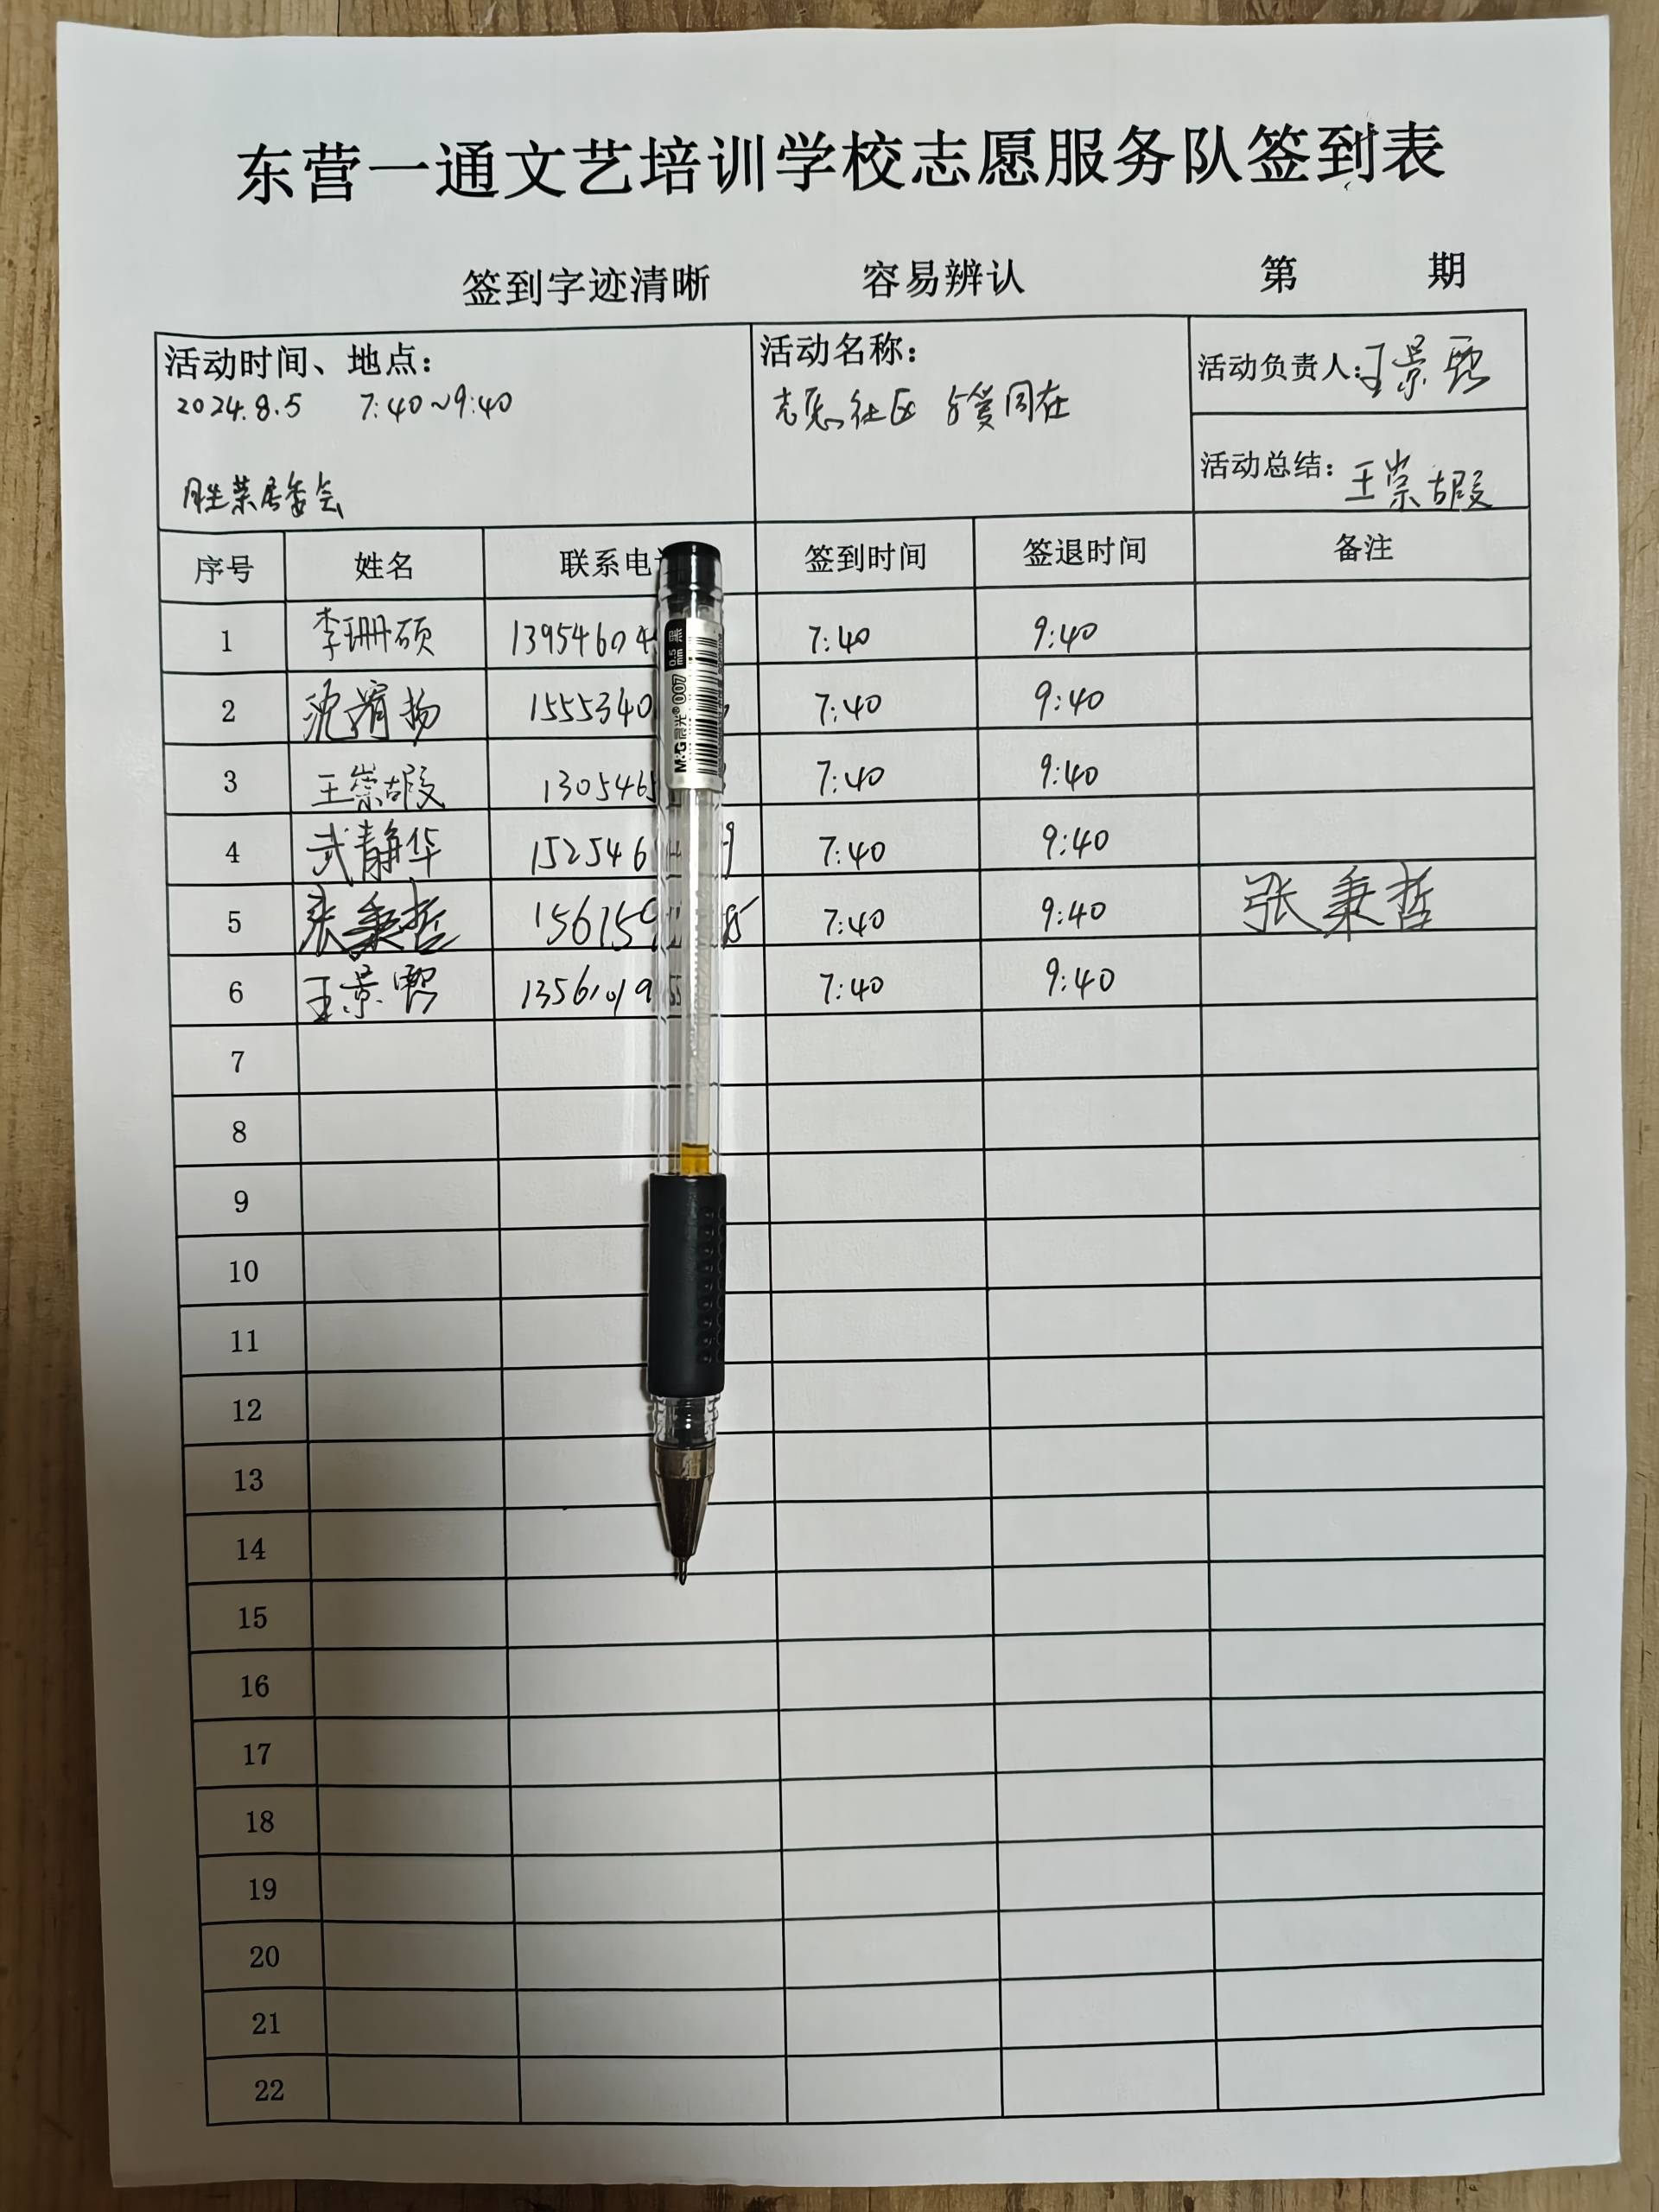 东营一通文艺培训学校志愿服务队签到表
签到字迹清晰 容易辨认 第 期
活动时间、地点： 活动名称： 活动负责人：王景
2024.8.5 7:40~9:40 志愿社区 与爱同在
胜莱居委会 活动总结：王崇
序号 姓名 联系电 签到时间 签退时间 备注
1 李珊硕 13954604 7:40 9:40
2 沈 扬 1555340 7:40 9:40
3 王崇 1305465 7:40 9:40
4 武静华 1525461 9 7:40 9:40
5 张秉哲 156159 5 7:40 9:40 张秉哲
6 王景 13561019 7:40 9:40
7
8
9
10
11
12
13
14
15
16
17
18
19
20
21
22
0.5mm 黑
M&G晨光® 007